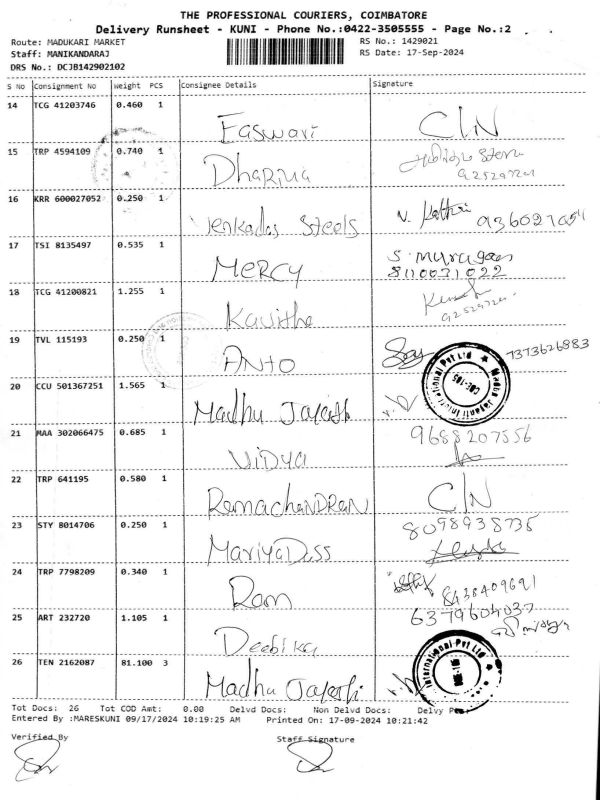 THE PROFESSIONAL COURIERS, COIMBATORE
Delivery Runsheet - KUNI - Phone No.:0422-3505555 - Page No.:2
Route: MADUKARI MARKET
RS No.: 1429021
Staff: MANIKANDARAJ
RS Date: 17-Sep-2024
DRS No.: DCJB142902102
S No Consignment No Weight PCS Consignee Details Signature
14 TCG 41203746 0.460 1 Easwari C/N
15 TRP 4594109 0.740 1 Dharma
16 KRR 600027052 0.250 1 Venkadas Steels
17 TSI 8135497 0.535 1 MERCY S. Murugan
8110031022
18 TCG 41200821 1.255 1 Kavitha
19 TVL 115193 0.250 1 ANTO 7373626883
20 CCU 501367251 1.565 1 Madhu Jayanti
21 MAA 302066475 0.685 1 VIDYA 9688207556
22 TRP 641195 0.580 1 RamachanDRAN C/N
23 STY 8014706 0.250 1 MariyaDass 8098938735
24 TRP 7798209 0.340 1 Ram 8438409691
25 ART 232720 1.105 1 Deebika 6379604037
26 TEN 2162087 81.100 3 Madhu Jayanti
International Pvt Ltd
Tot Docs: 26 Tot COD Amt: 0.00 Delvd Docs: Non Delvd Docs: Delvy
Entered By :MARESKUNI 09/17/2024 10:19:25 AM Printed On: 17-09-2024 10:21:42
Verified By Staff Signature